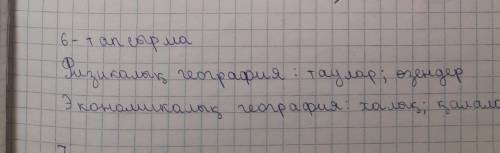 6-тапсырма
Физикалық география: таулар; өзендер
Экономикалық география: халық;